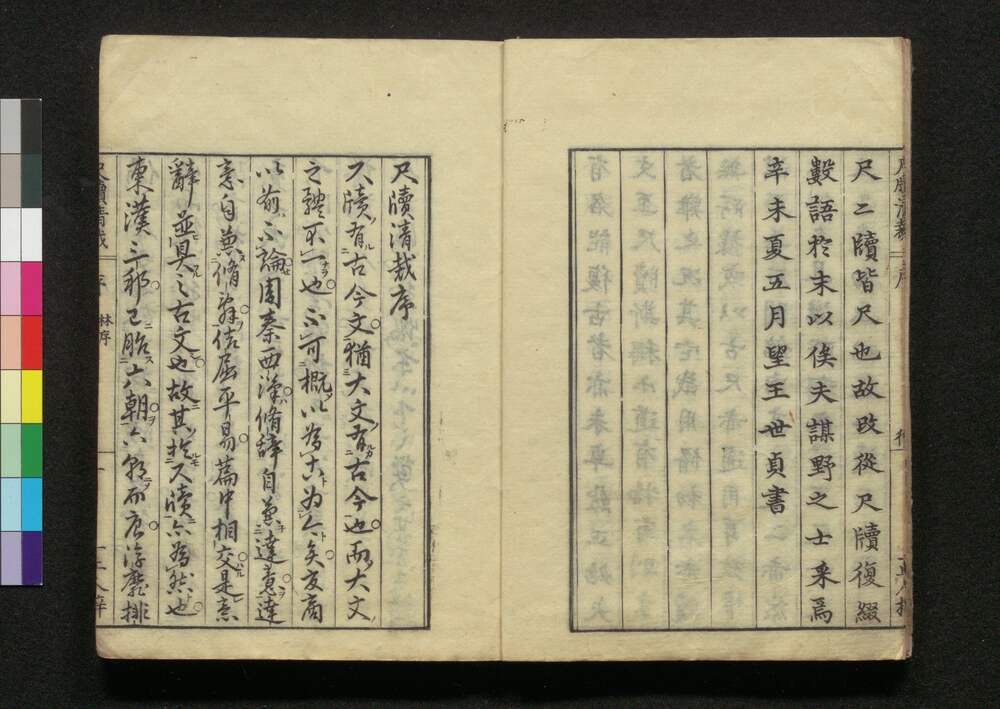 尺二牘皆尺也故改從尺牘復綴
數語於末以俟夫謀野之士采焉
辛未夏五月望王世貞書
尺牘清裁序
尺牘有古今文猶大文有古今也而大文
之體不一也不可概以為古為今矣夏商
以前不論周秦西漢脩辭自兼達意達
意自兼脩辭佶屈平易篇中相交是意
辭並具之古文也故其於尺牘亦為然也
東漢三已胎六朝六而唐浮靡排
尺牘清裁 序
尺牘清裁 序 林序